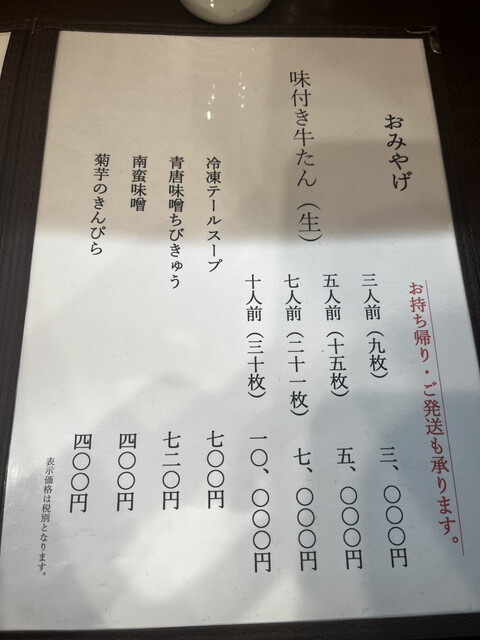 おみやげ
お持ち帰り・ご発送も承ります。
味付き牛たん（生）
三人前（九枚） 三、〇〇〇円
五人前（十五枚） 五、〇〇〇円
七人前（二十一枚） 七、〇〇〇円
十人前（三十枚） 一〇、〇〇〇円
冷凍テールスープ 七〇〇円
青唐味噌ちびきゅう 七二〇円
南蛮味噌 四〇〇円
菊芋のきんぴら 四〇〇円
表示価格は税別となります。